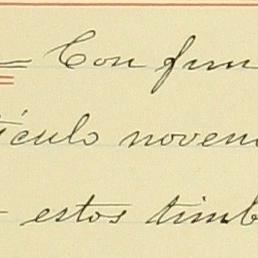 = Con fun
tículo noveno
- estos timb